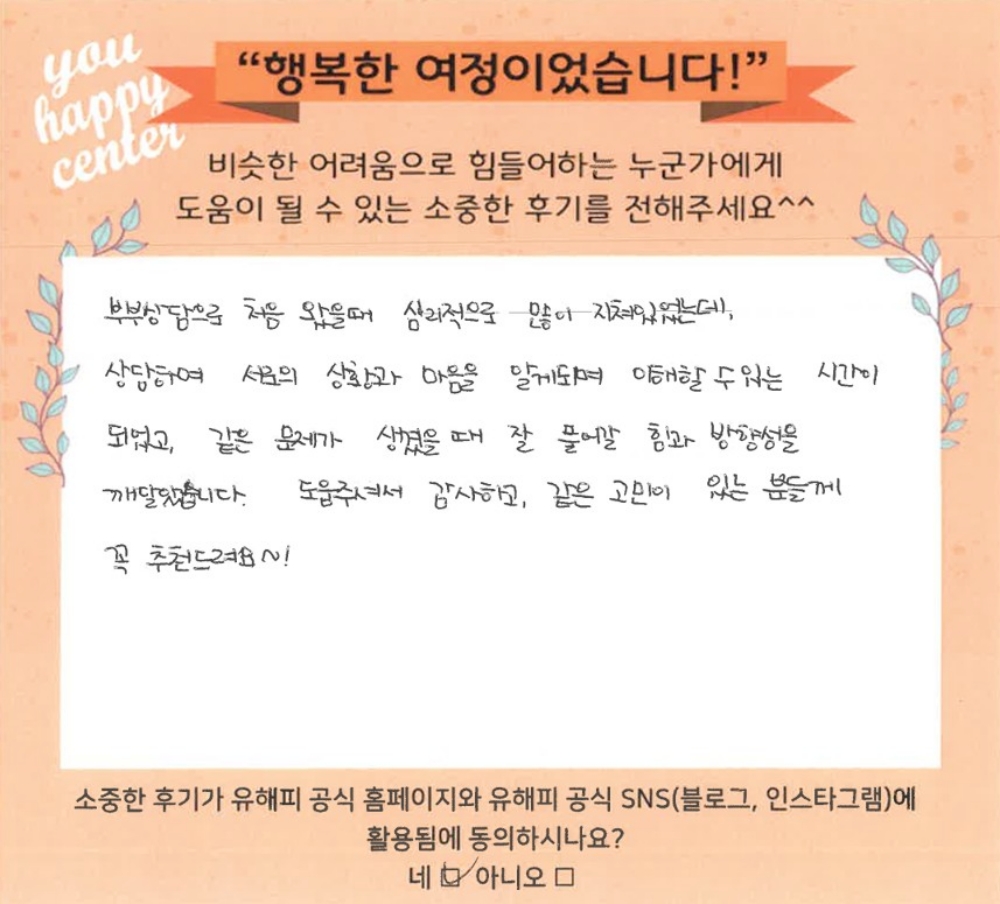 you
happy
center
“행복한 여정이었습니다!”
비슷한 어려움으로 힘들어하는 누군가에게
도움이 될 수 있는 소중한 후기를 전해주세요^^
부부상담으로 처음 왔을때 심리적으로 많이 지쳐있었는데,
상담하며 서로의 상황과 마음을 알게되며 이해할 수 있는 시간이
되었고, 같은 문제가 생겼을 때 잘 풀어갈 힘과 방향성을
깨달았습니다. 도움주셔서 감사하고, 같은 고민이 있는 분들께
꼭 추천드려요~!
소중한 후기가 유해피 공식 홈페이지와 유해피 공식 SNS(블로그, 인스타그램)에
활용됨에 동의하시나요?
네 ☑ 아니오 □